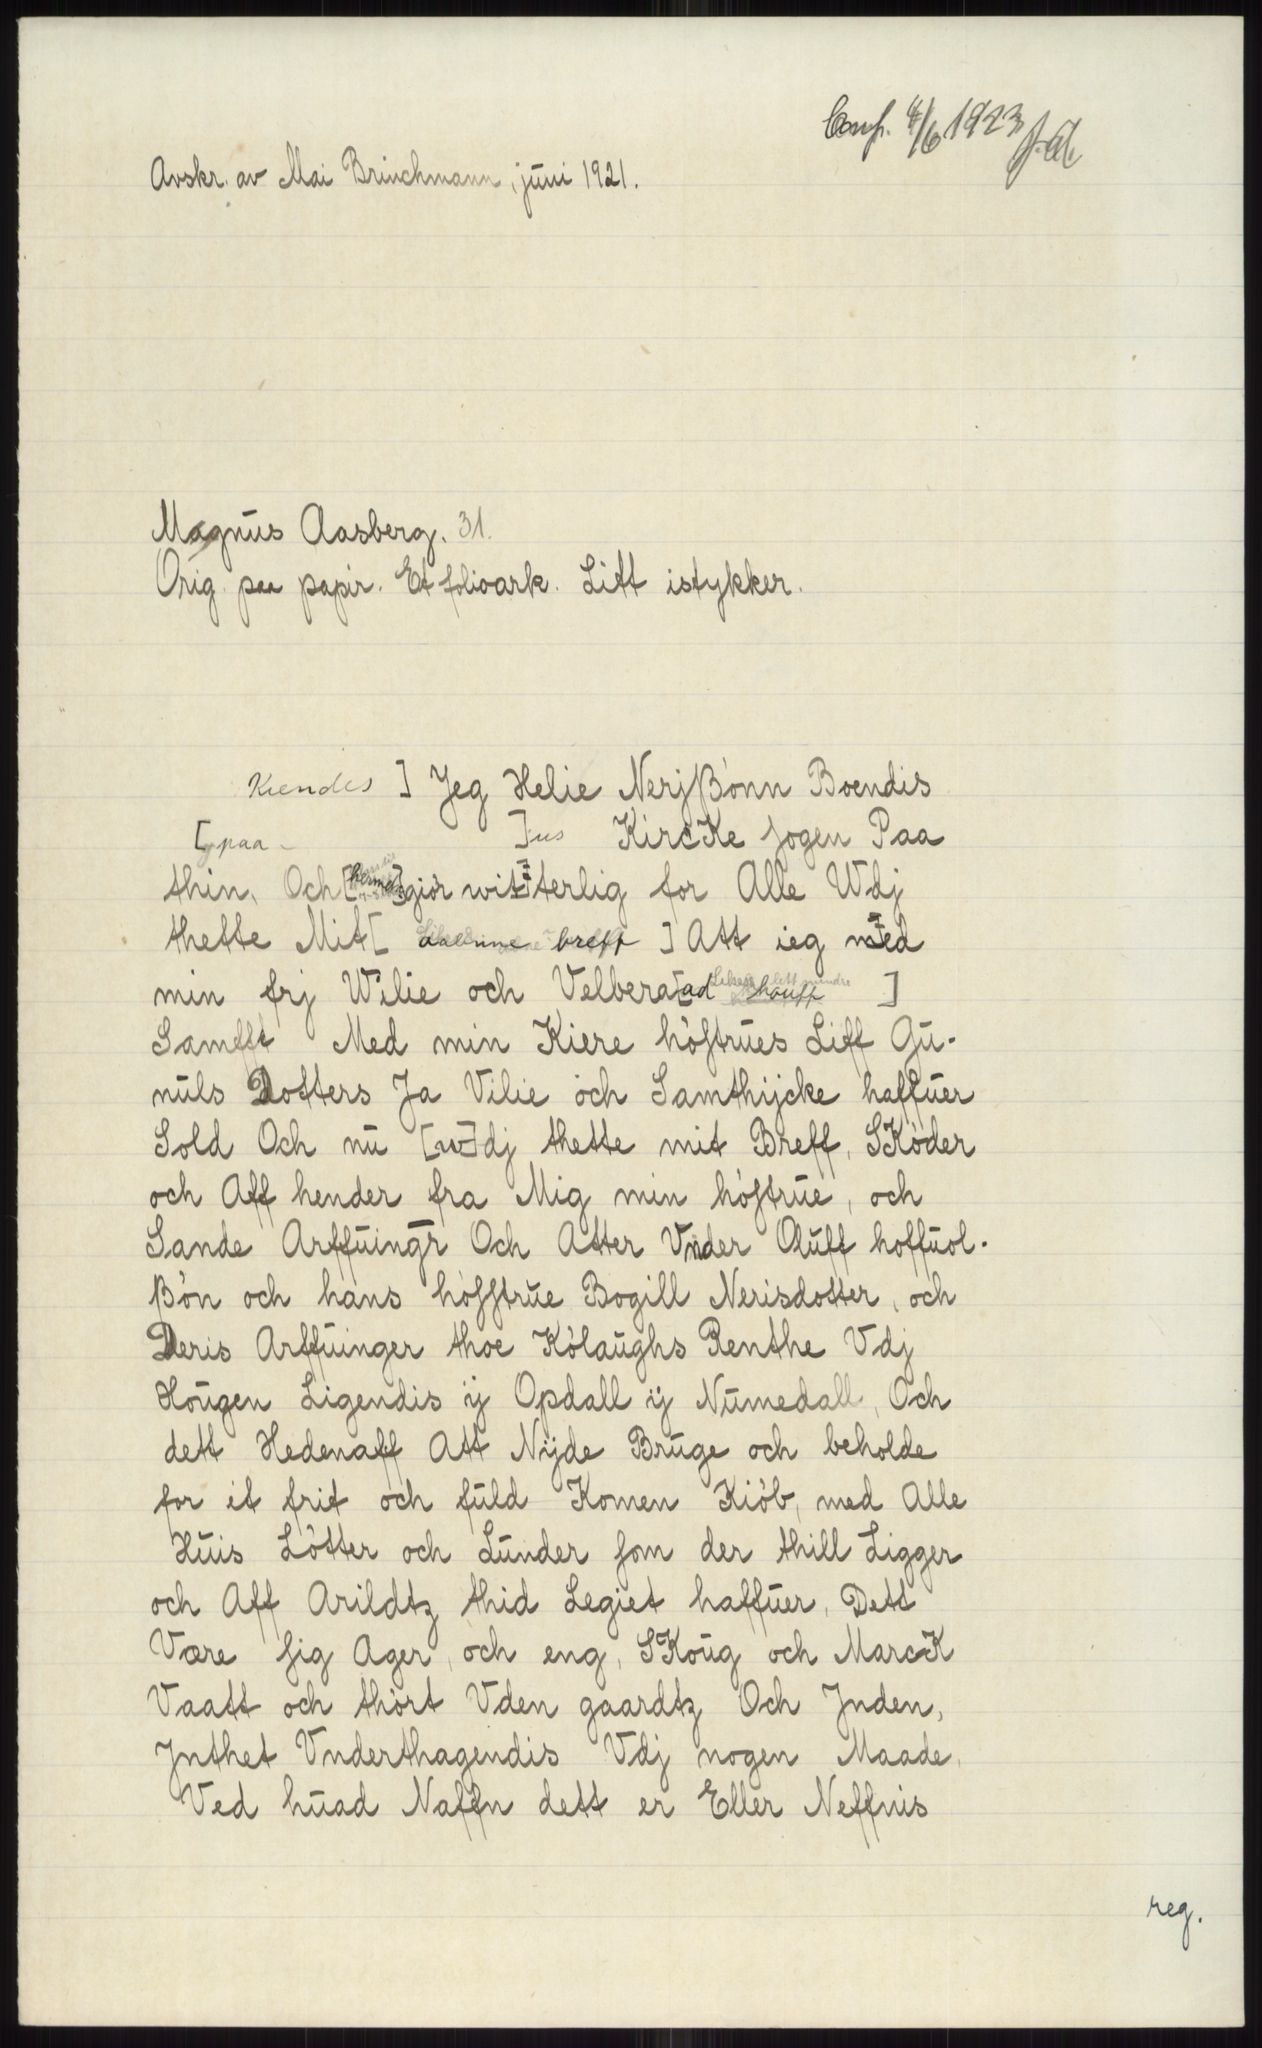 Conf. 4/6 1923
Avskr. av Mai Brinchmann, juni 1921.
Magnus Aasberg. 31.
Orig. paa papir. Et folioark. Litt istykker.
Kiendes ] Jeg Helie Nerjßònn Boendis
[paa ]us KircKe sogen Paa
thin, Och [hermed] giòr witterlig for Alle Wdj
thette Mit [ breff ] Att ieg med
min frj Wilie och Velbera[ad houff ]
Samfft Med min Kiere hòstrues Liff Gu-
nuls Dotters Ja Vilie och Samthijcke haffuer
Sold Och nu [w]dj thette mit Breff, SKòder
och Aff hender fra Mig min hòstrue, och
Sande Arffuingr Och Atter Vnder Oluff hoffuol-
ßòn och hans hòfstrue Bogill Nerisdotter, och
Deris Arffuinger thoe Kòlaughs Renthe Vdj
Hougen Ligendis ij Opdall ij Numedall, Och
dett Hedenaff Att Nijde Bruge och beholde
for it frit och fuld Komen Kiòb, med Alle
Huis Lòtter och Lunder som der thill Ligger
och Aff Arildtz thid Legiet haffuer, Dett
Være sig Ager, och eng, SKoug och MarcK
Vaatt och thòrt Vden gaardtz Och Jnden,
Jnthet Vnderthagendis Vdj nogen Maade,
Ved huad Naffn dett er Eller Neffnis
reg.